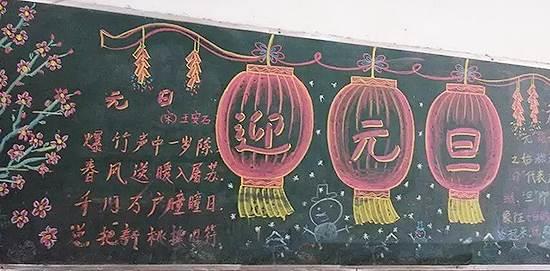 元 日
(宋)王安石
爆竹声中一岁除.
春风送暖入屠苏.
千门万户曈曈日.
总把新桃换旧符.
迎元旦